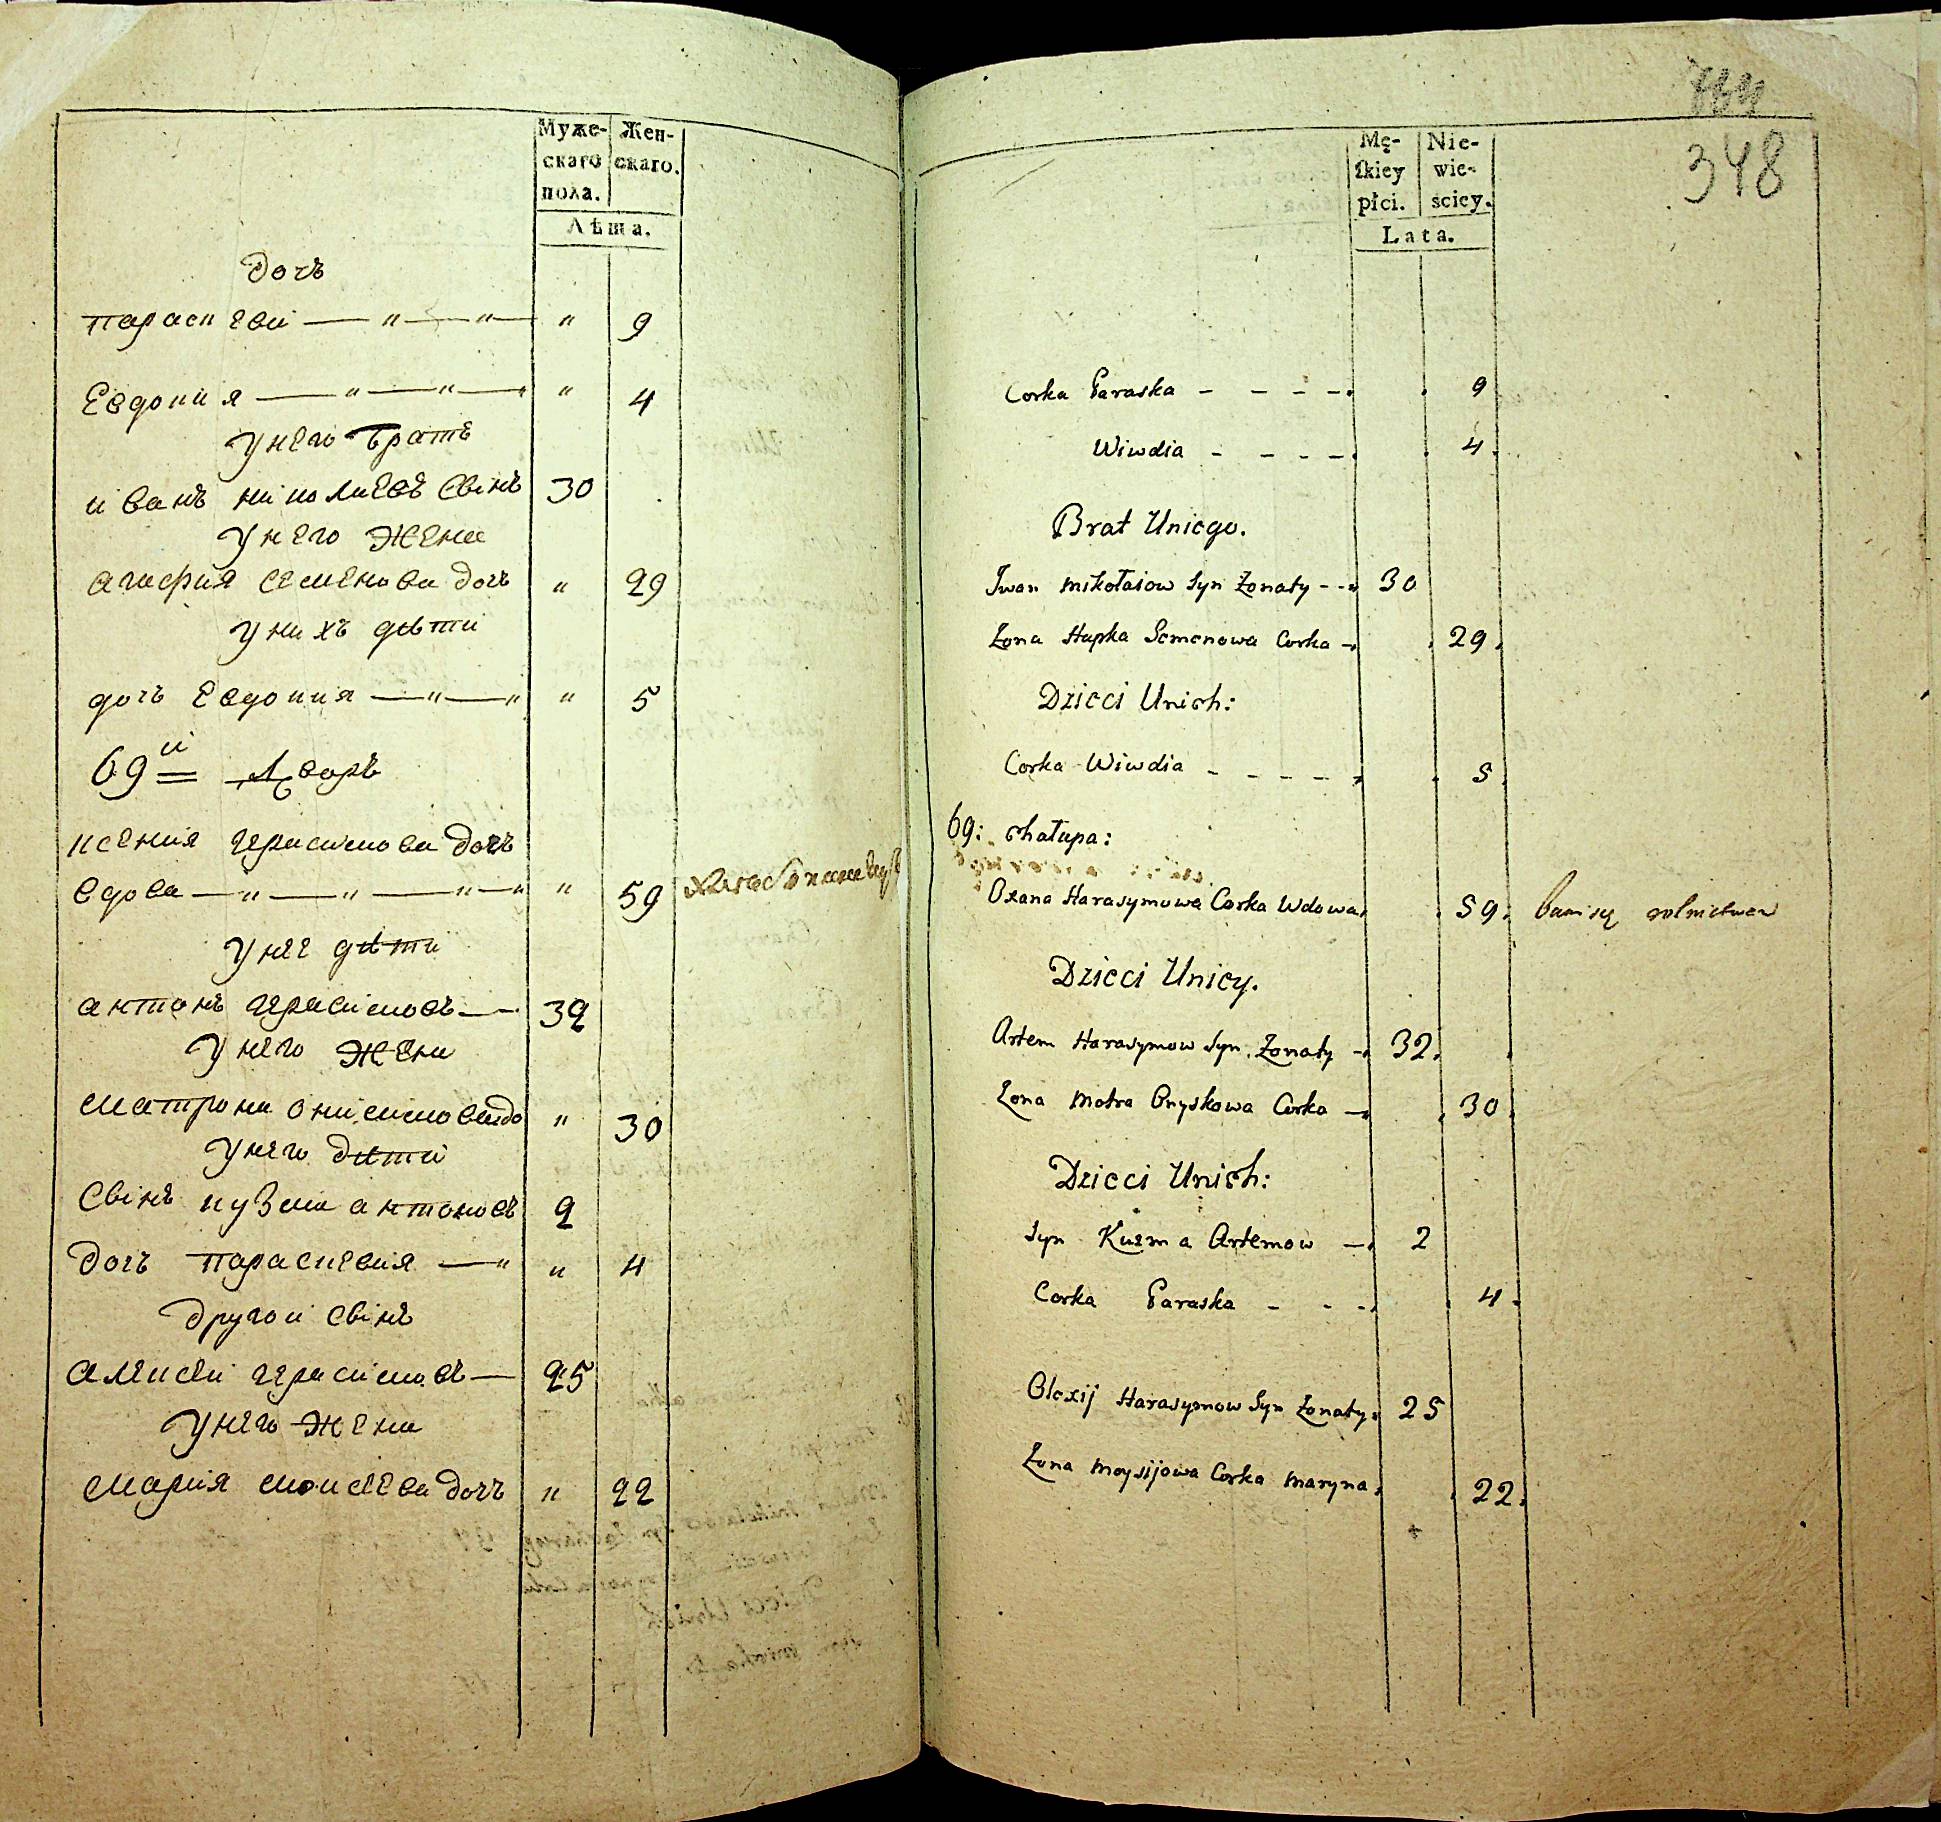 Муже-
скаго
пола.
Жен-
скаго.
Лѣта.
дочъ
параскеви 9
Евдокия 4
у него братъ
иванъ николаевъ свінъ 30
у него жена
агафия семенова дочъ 29
у нихъ дѣти
дочъ Евдокия 5
69й Дворъ
ксения герасимова дочъ
вдова 59
у нее дѣти
антонъ герасимовъ 32
у него жена
матрона онисимова до 30
у него дѣти
свінъ кузма антоновъ 2
дочъ параскевия 4
другой свінъ
алексѣй герасимовъ 25
у него жена
мария моисѣева дочъ 22
348
Mę-
ſkiey
płci.
Nie-
wie-
sciey.
Lata.
Corka Paraska 9
Wiwdia 4
Brat Uniego.
Iwan mikołaiow syn Żonaty 30
Żona Hapka Semenowa Corka 29
Dzieci Unich:
Corka Wiwdia 5
69: chałupa:
Oxana Harasymowa Corka Wdowa 59 bawi się rolnictwem
Dzieci Unicy.
Artem Harasymow syn Żonaty 32
Żona Motra Onyskowa Corka 30
Dzieci Unich:
syn Kuzma Artemow 2
Corka Paraska 4
Olexij Harasymow Syn Żonaty 25
Żona moysijowa Corka maryna 22